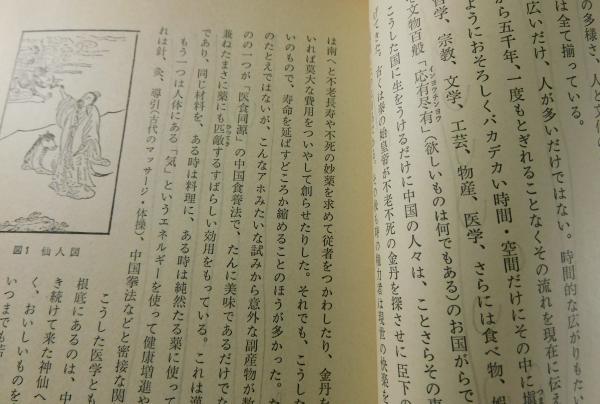 の多様さ、人と文化の
は全て揃っている。
広いだけ、人が多いだけではない。時間的な広がりもたい
から五千年、一度もとぎれることなくその流れを現在に伝え
ようにおそろしくバカデカい時間・空間だけにその中に
哲学、宗教、文学、工芸、物産、医学、さらには食べ物、
文物百般「応有尽有」（欲しいものは何でもある）のお国がらで
インヨウチンヨウ
こうした国に生をうけるだけに中国の人々は、ことさらその
古くは秦の始皇帝が不老不死の金丹を探させに臣下の
は南へと不老長寿や不死の妙薬を求めて従者をつかわしたり、金丹を
いれば莫大な費用をついやして創らせたりした。それでも、こうした
いのもので、寿命を延ばすどころか縮めることのほうが多かった。た
のたとえではないが、こんなアホみたいな試みから意外な副産物が
のの一つが「医食同源」の中国食養法で、たんに美味であるだけでな
兼ねたまさに薬にも匹敵するすばらしい効用をもっている。これは漢
であり、同じ材料を、ある時は料理に、ある時は純然たる薬に使って
もう一つは人体にある「気」というエネルギーを使って健康増進や
れは針、灸、導引（古代のマッサージ・体操）、中国拳法などと密接な関
こうした医学とも
根底にあるのは、中
き続けて来た神仙へ
く、おいしいものを
いつまでも若
図1 仙人図